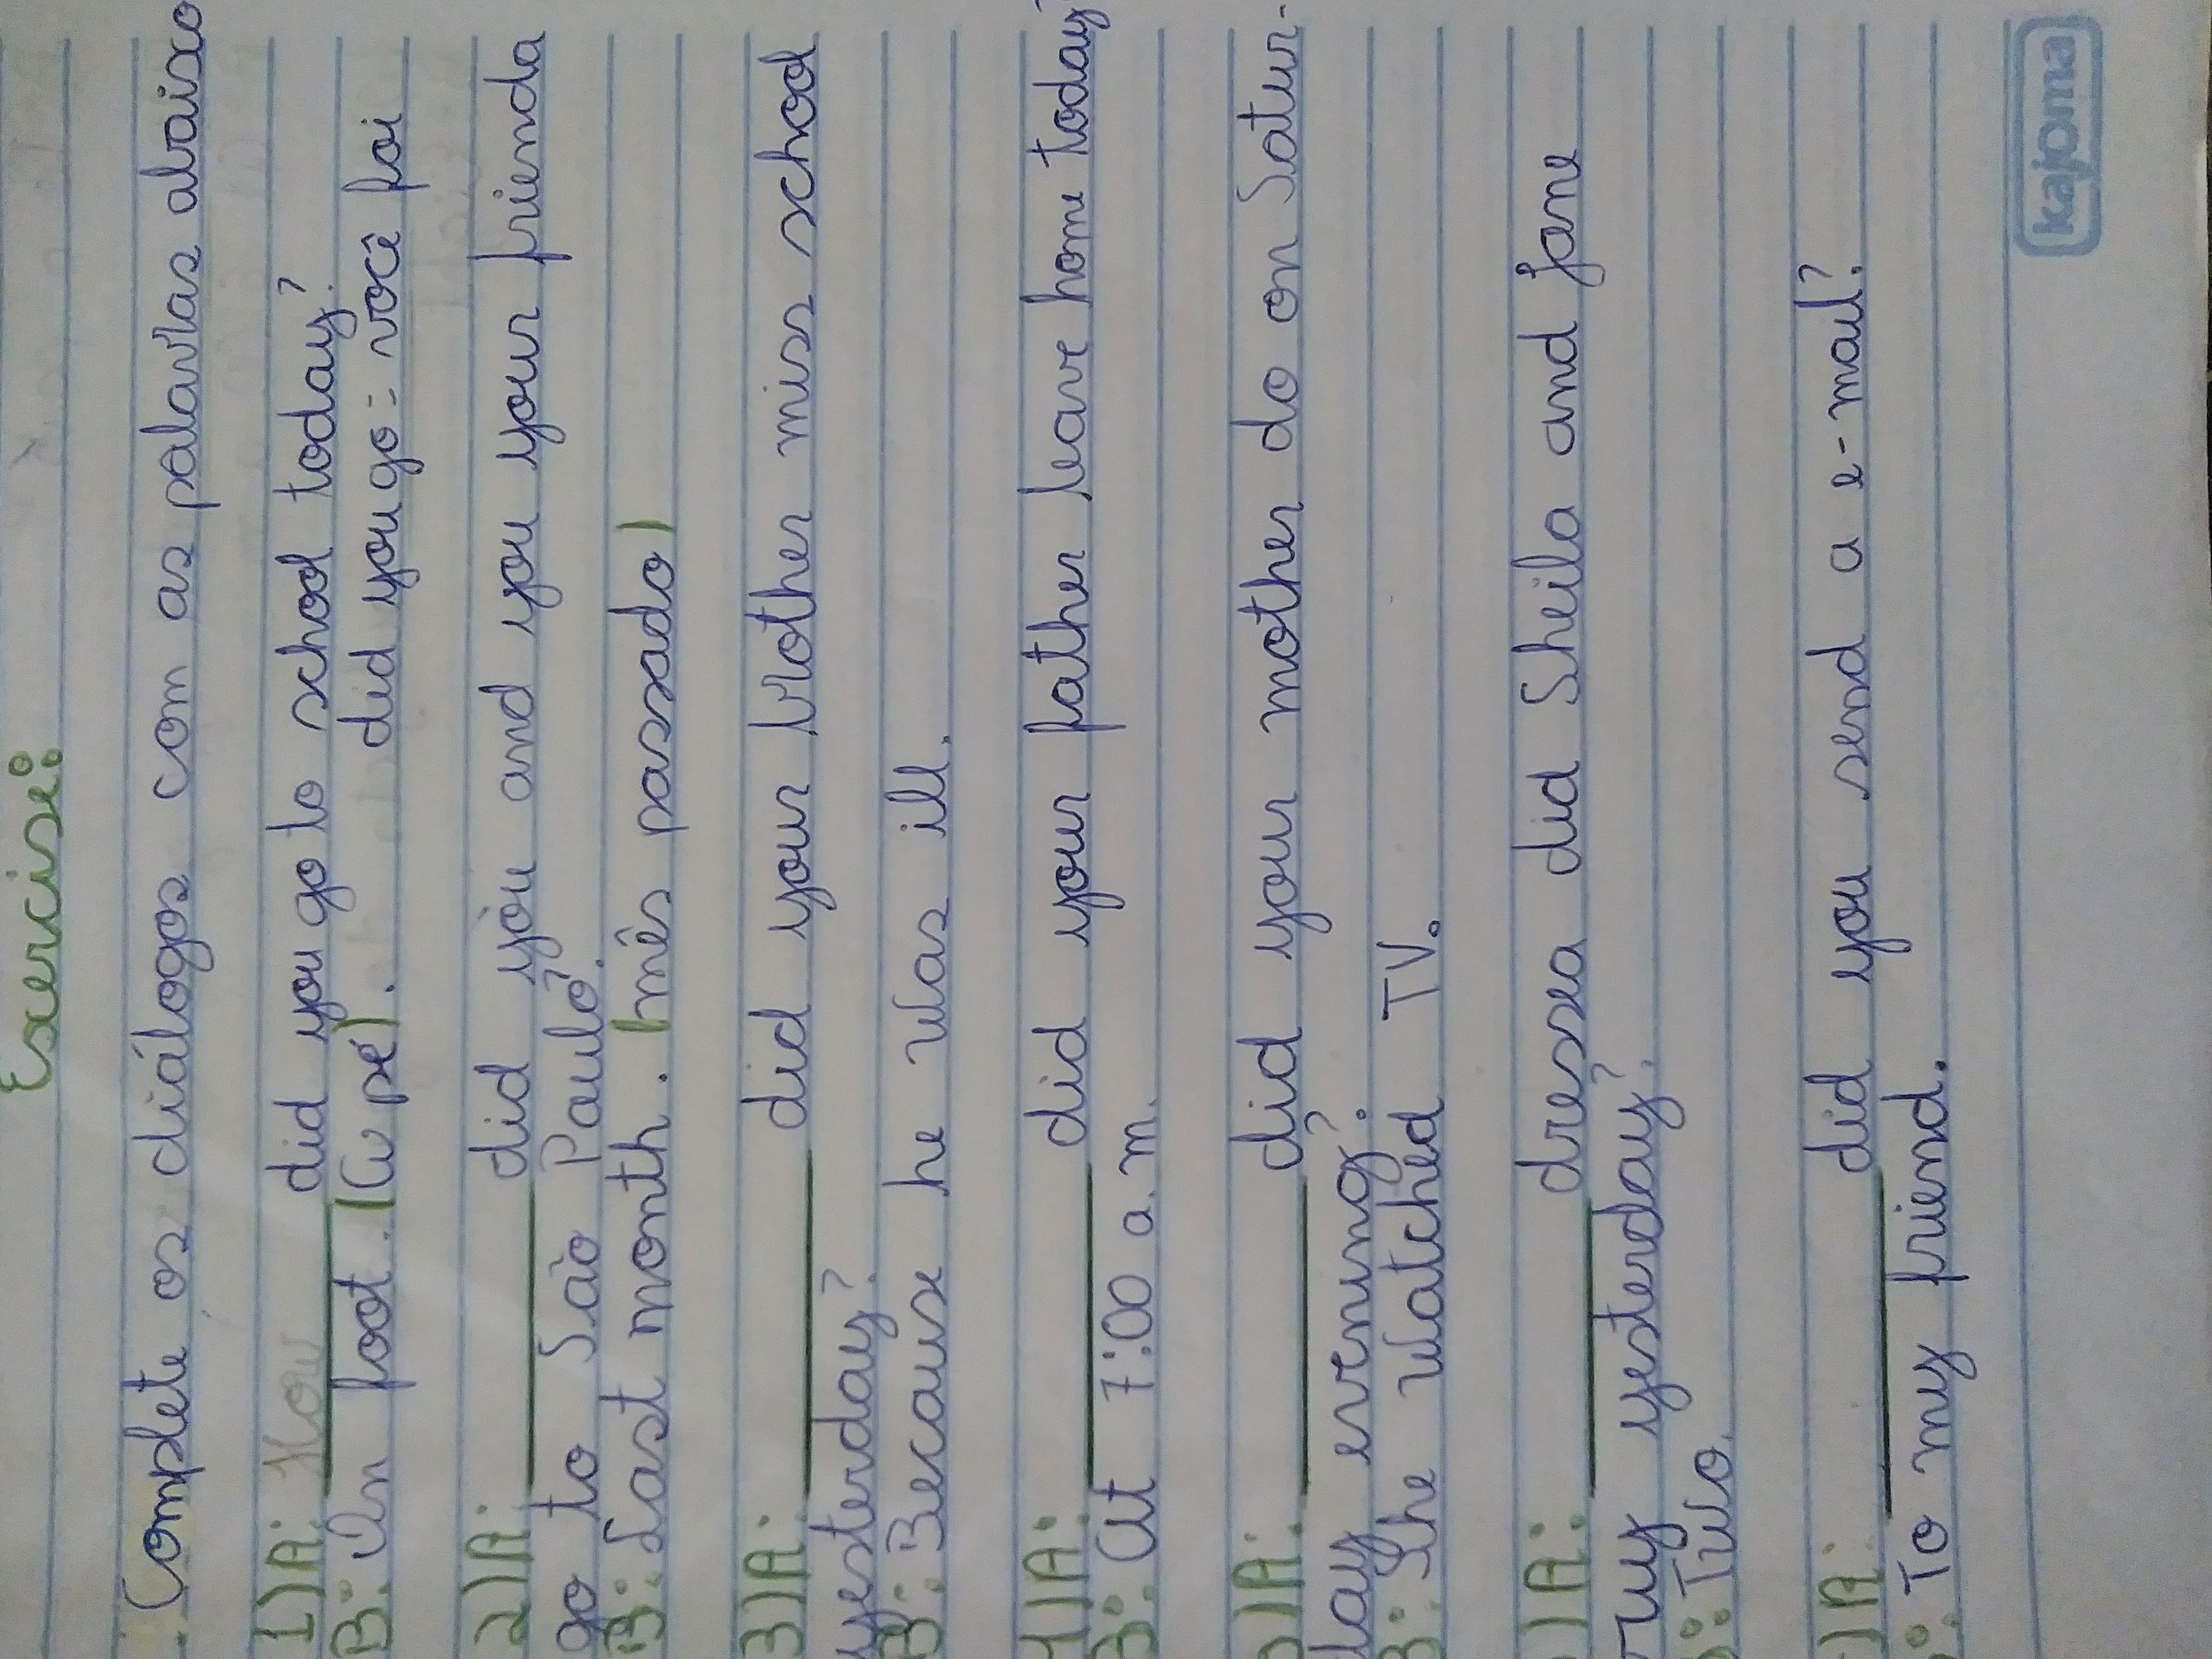 Exercise:
Complete os diálogos com as palavras abaixo
1) A: How ______ did you go to school today?
B: On foot. (a pé). did you go = você foi
2) A: ______ did you and you your frienda
go to São Paulo?
B: Last month. (mês passado)
3) A: ______ did your brother miss school
yesterday?
B: Because he was ill.
4) A: ______ did your father leave home today?
B: At 7:00 a.m.
) A: ______ did your mother do on Satur-
day evening?
B: She watched TV.
) A: ______ dresses did Sheila and Jane
yesterday?
B: Two.
) A: ______ did you send a e-mail?
: To my friend.
kajoma